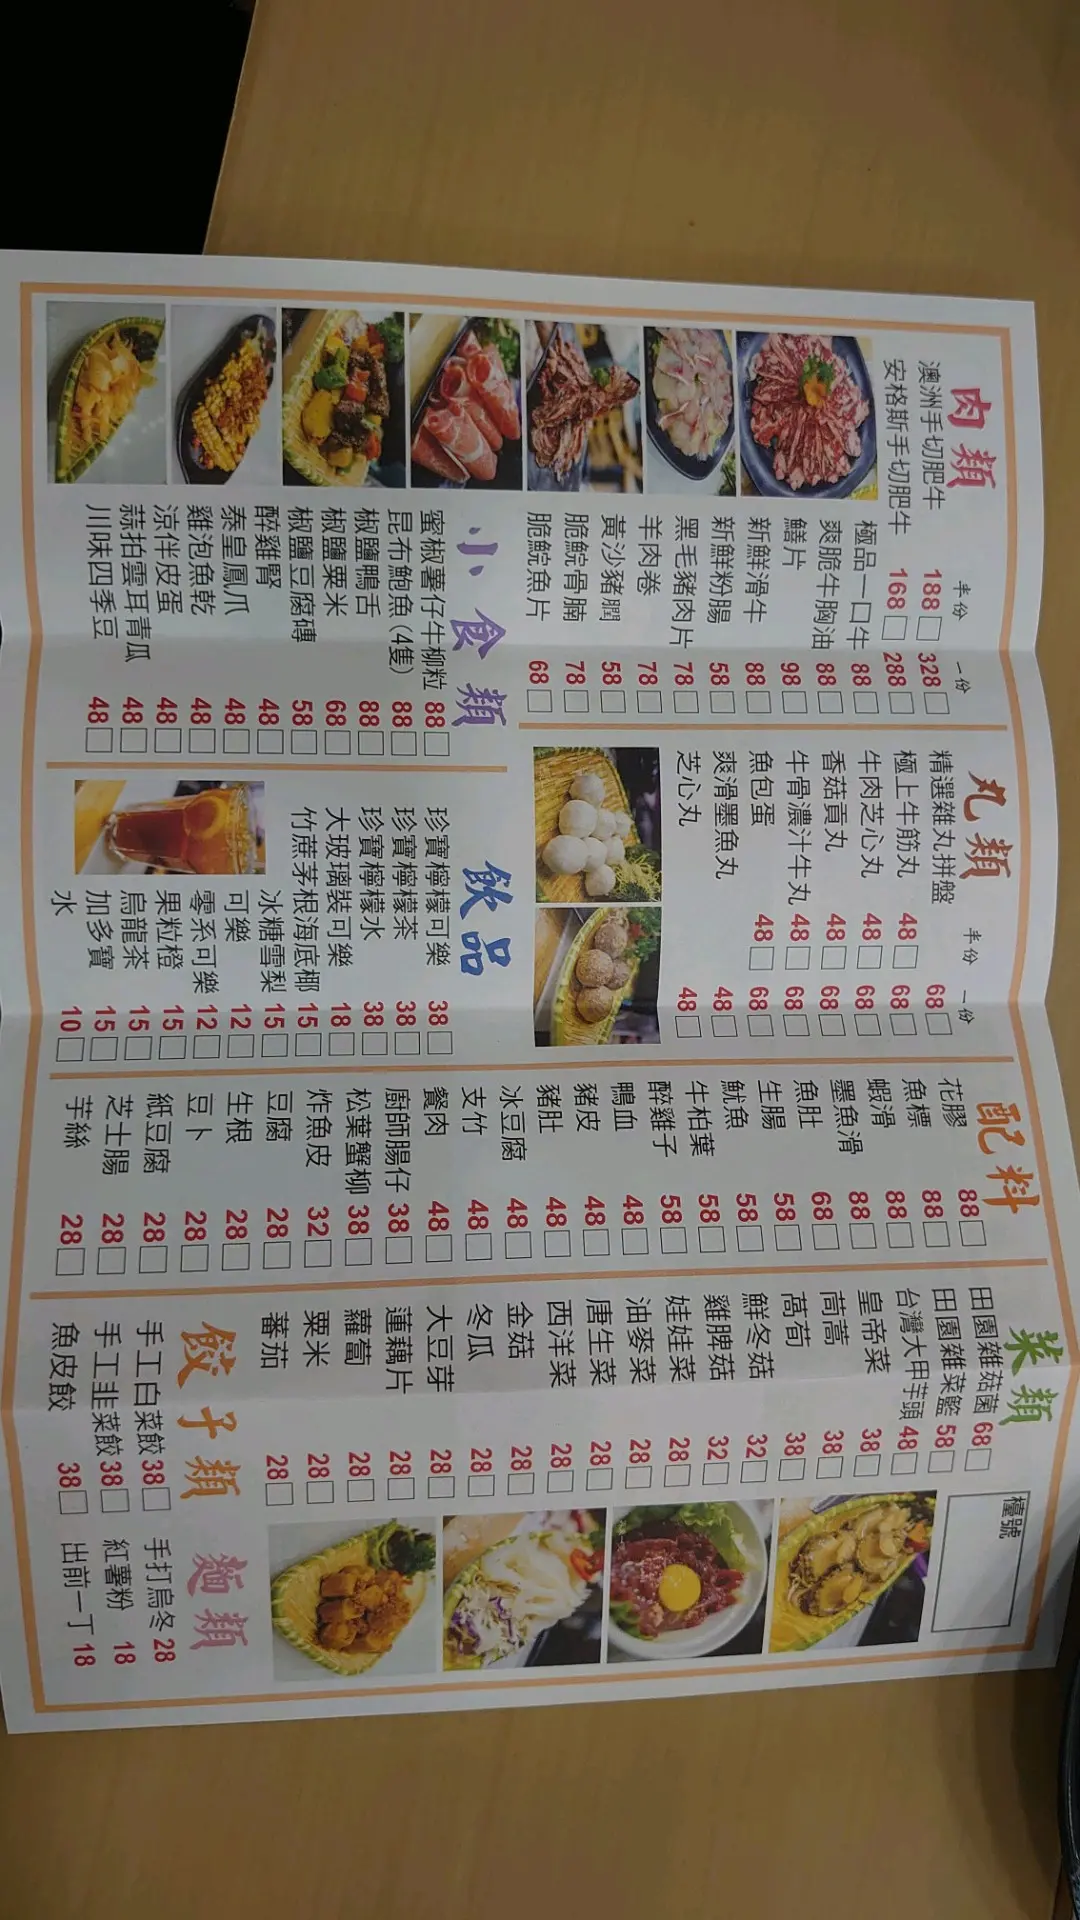 肉類
半份 一份
澳洲手切肥牛 188 328
安格斯手切肥牛 168 288
極品一口牛 88
爽脆牛胸油 88
鱔片 98
新鮮滑牛 88
新鮮粉腸 58
黑毛豬肉片 78
羊肉卷 78
黃沙豬膶 58
脆鯇骨腩 78
脆鯇魚片 68
小食類
蜜椒薯仔牛柳粒 88
昆布鮑魚(4隻) 88
椒鹽鴨舌 88
椒鹽粟米 68
椒鹽豆腐磚 58
醉雞腎 48
泰皇鳳爪 48
雞泡魚乾 48
涼伴皮蛋 48
蒜拍雲耳青瓜 48
川味四季豆 48
丸類
半份 一份
精選雜丸拼盤 68
極上牛筋丸 48 68
牛肉芝心丸 48 68
香菇貢丸 48 68
牛骨濃汁牛丸 48 68
魚包蛋 48 68
爽滑墨魚丸 48
芝心丸 48
飲品
珍寶檸檬可樂 38
珍寶檸檬茶 38
珍寶檸檬水 38
大玻璃裝可樂 18
竹蔗茅根海底椰 15
冰糖雪梨 15
可樂 12
零系可樂 12
果粒橙 15
烏龍茶 15
加多寶 15
水 10
配料
花膠 88
魚標 88
蝦滑 88
墨魚滑 88
魚肚 68
生腸 58
魷魚 58
牛柏葉 58
醉雞子 58
鴨血 48
豬皮 48
豬肚 48
冰豆腐 48
支竹 48
餐肉 48
廚師腸仔 38
松葉蟹柳 38
炸魚皮 32
豆腐 28
生根 28
豆卜 28
紙豆腐 28
芝士腸 28
芋絲 28
菜類
田園雜菇菌 68
田園雜菜籃 58
台灣大甲芋頭 48
皇帝菜 38
茼蒿 38
萵荀 38
鮮冬菇 32
雞脾菇 32
娃娃菜 28
油麥菜 28
唐生菜 28
西洋菜 28
金菇 28
冬瓜 28
大豆芽 28
蓮藕片 28
蘿蔔 28
粟米 28
蕃茄 28
餃子類
手工白菜餃 38
手工韭菜餃 38
魚皮餃 38
檯號
麵類
手打烏冬 28
紅薯粉 18
出前一丁 18